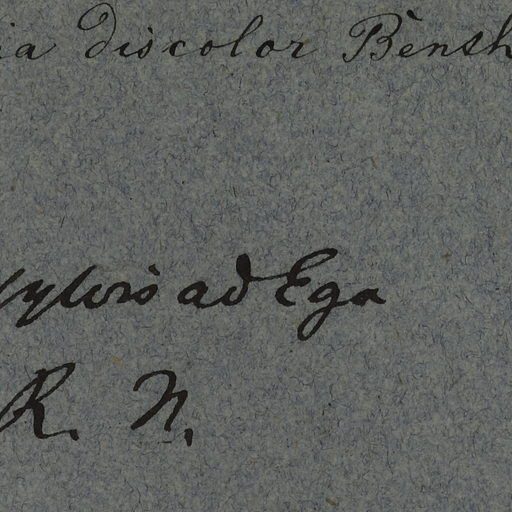 ia discolor Bènth
sylvis ad Ega
R. N.